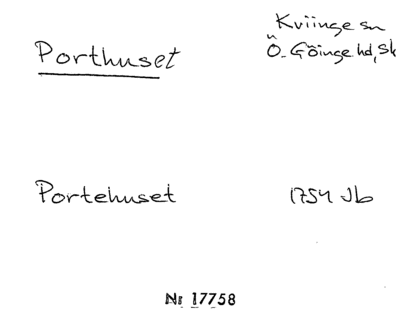 Kviinge sn
Porthuset
Ö. Göinge hd, Sk
Portehuset
1754 Jb
Nr 17758